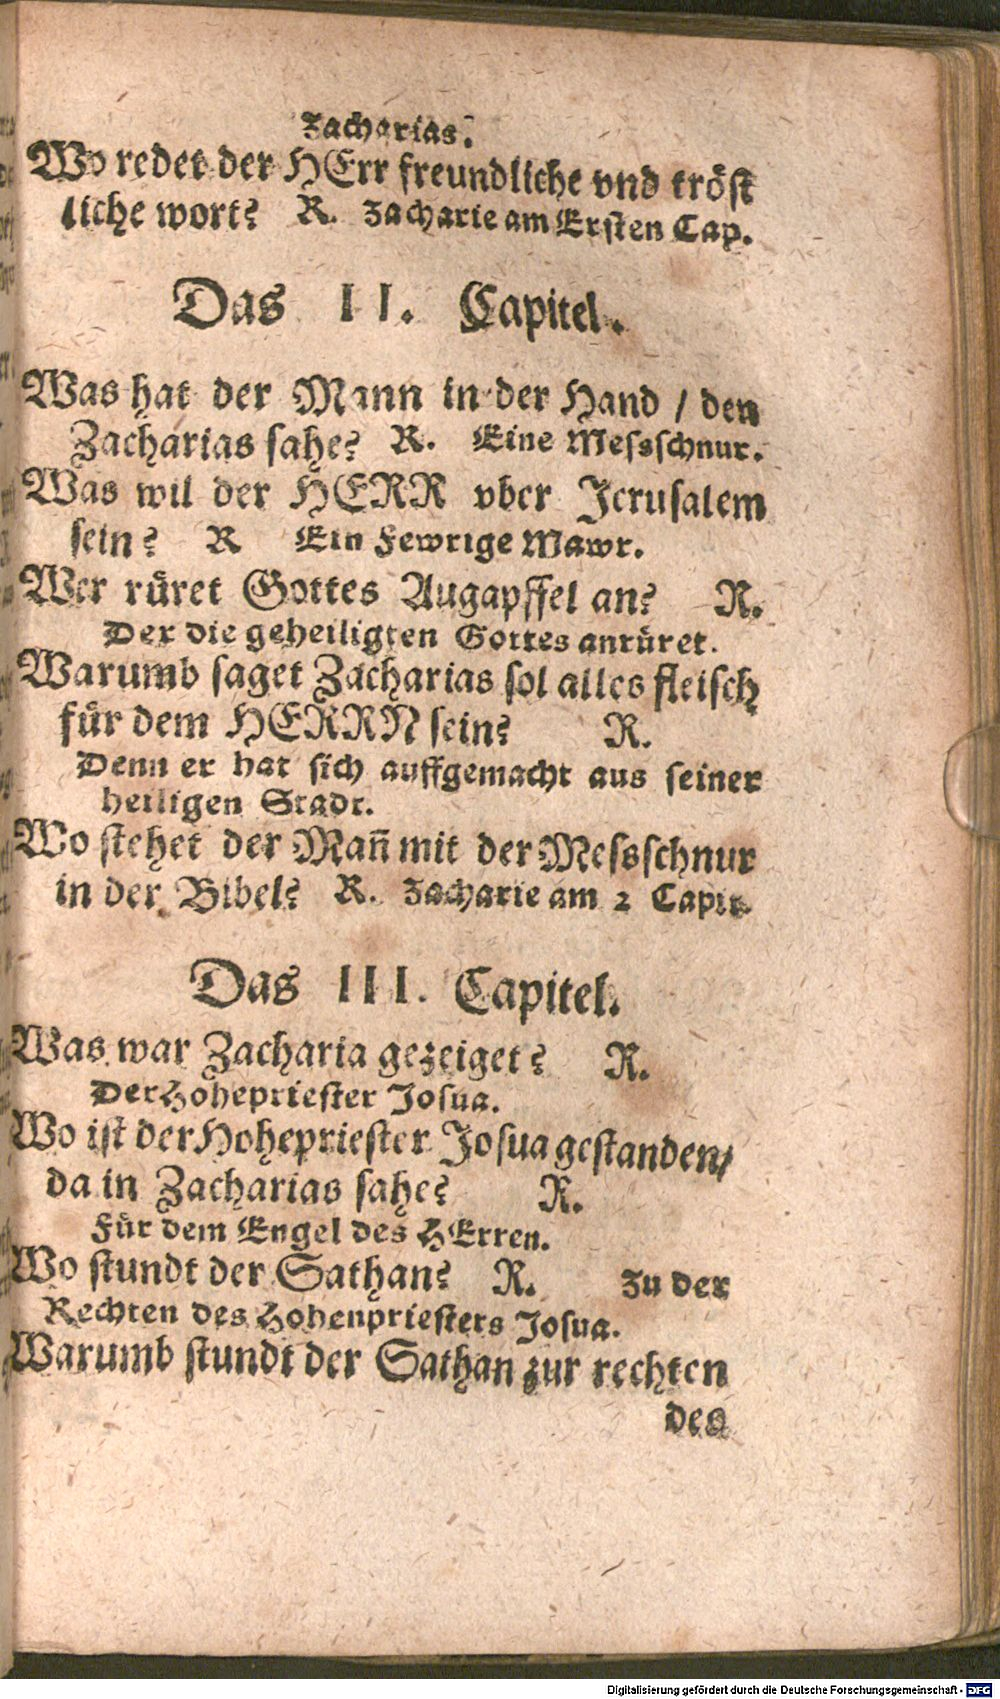 Zacharias.
Wo redet der HErr freundliche vnd tröst
liche wort? R. Zacharie am Ersten Cap.
Das II. Capitel.
Was hat der Mann in der Hand / den
Zacharias sahe? R. Eine Messschnur.
Was wil der HERR vber Jerusalem
sein? R Ein Fewrige Mawr.
Wer rüret Gottes Augapffel an? R.
Der die geheiligten Gottes anrüret.
Warumb saget Zacharias sol alles fleisch
für dem HERRN sein? R.
Denn er hat sich auffgemacht aus seiner
heiligen Stadt.
Wo stehet der Mañ mit der Messschnur
in der Bibel? R. Zacharie am 2 Capit.
Das III. Capitel.
Was war Zacharia gezeiget? R.
Der Hohepriester Josua.
Wo ist der Hohepriester Josua gestanden/
da in Zacharias sahe? R.
Für dem Engel des HErren.
Wo stundt der Sathan? R. Zu der
Rechten des Hohenpriesters Josua.
Warumb stundt der Sathan zur rechten
des
Digitalisierung gefördert durch die Deutsche Forschungsgemeinschaft - DFG